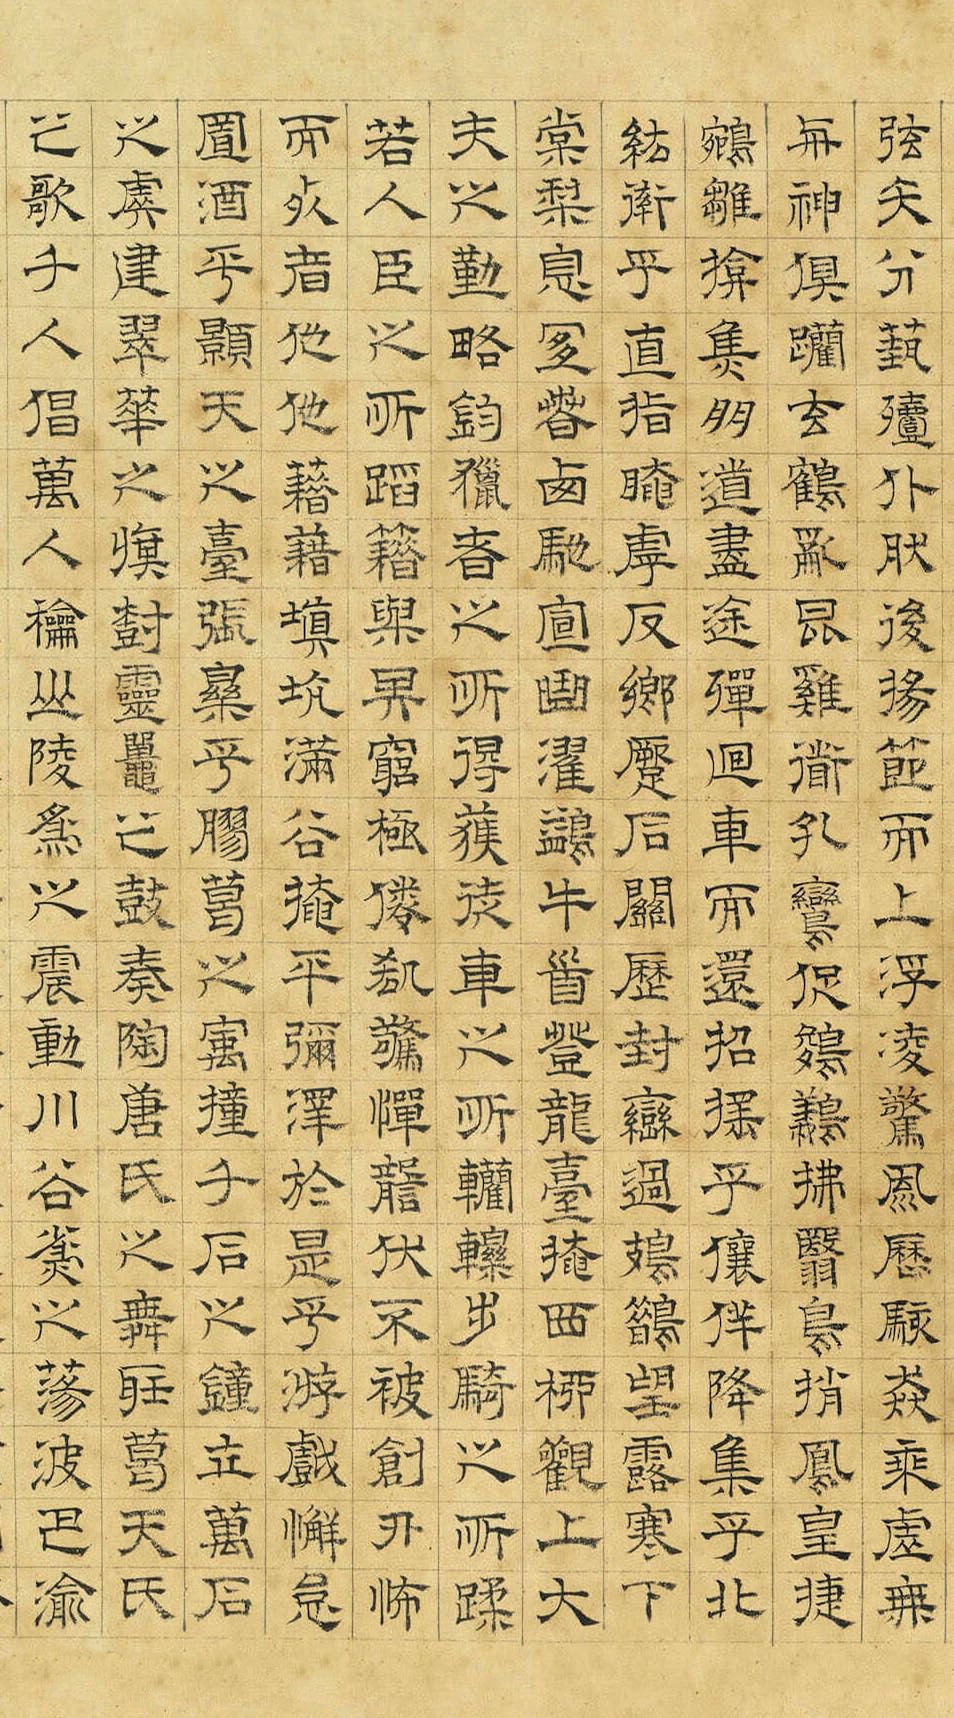 弦矢分蓺殪仆肰後揚節而上浮凌驚風歷駭猋乘虛無
與神俱躪玄鶴亂昆雞遒孔鸞促鵕鸃拂翳鳥捎鳳皇捷
鵷雛揜焦朋道盡途殫迴車而還招搖乎儴佯降集乎北
紘衛乎直指晻虖反鄉蹷石闕歷封巒過鳷鵲望露寒下
棠梨息宜萅西馳宣曲濯鷁牛首登龍臺掩西柳觀上大
夫之勤略鈞獵者之所得獲徒車之所轥轢步騎之所蹂
若人臣之所蹈籍與其窮極倦𠊬驚憚讋伏不被創刃怖
而死者他他藉藉填坑滿谷掩平彌澤於是乎游戲懈怠
置酒乎顥天之臺張樂乎膠葛之㝢撞千石之鐘立萬石
之虡建翠華之旗樹靈鼉之鼓奏陶唐氏之舞聽葛天氏
之歌千人倡萬人龢山陵為之震動川谷為之蕩波巴渝